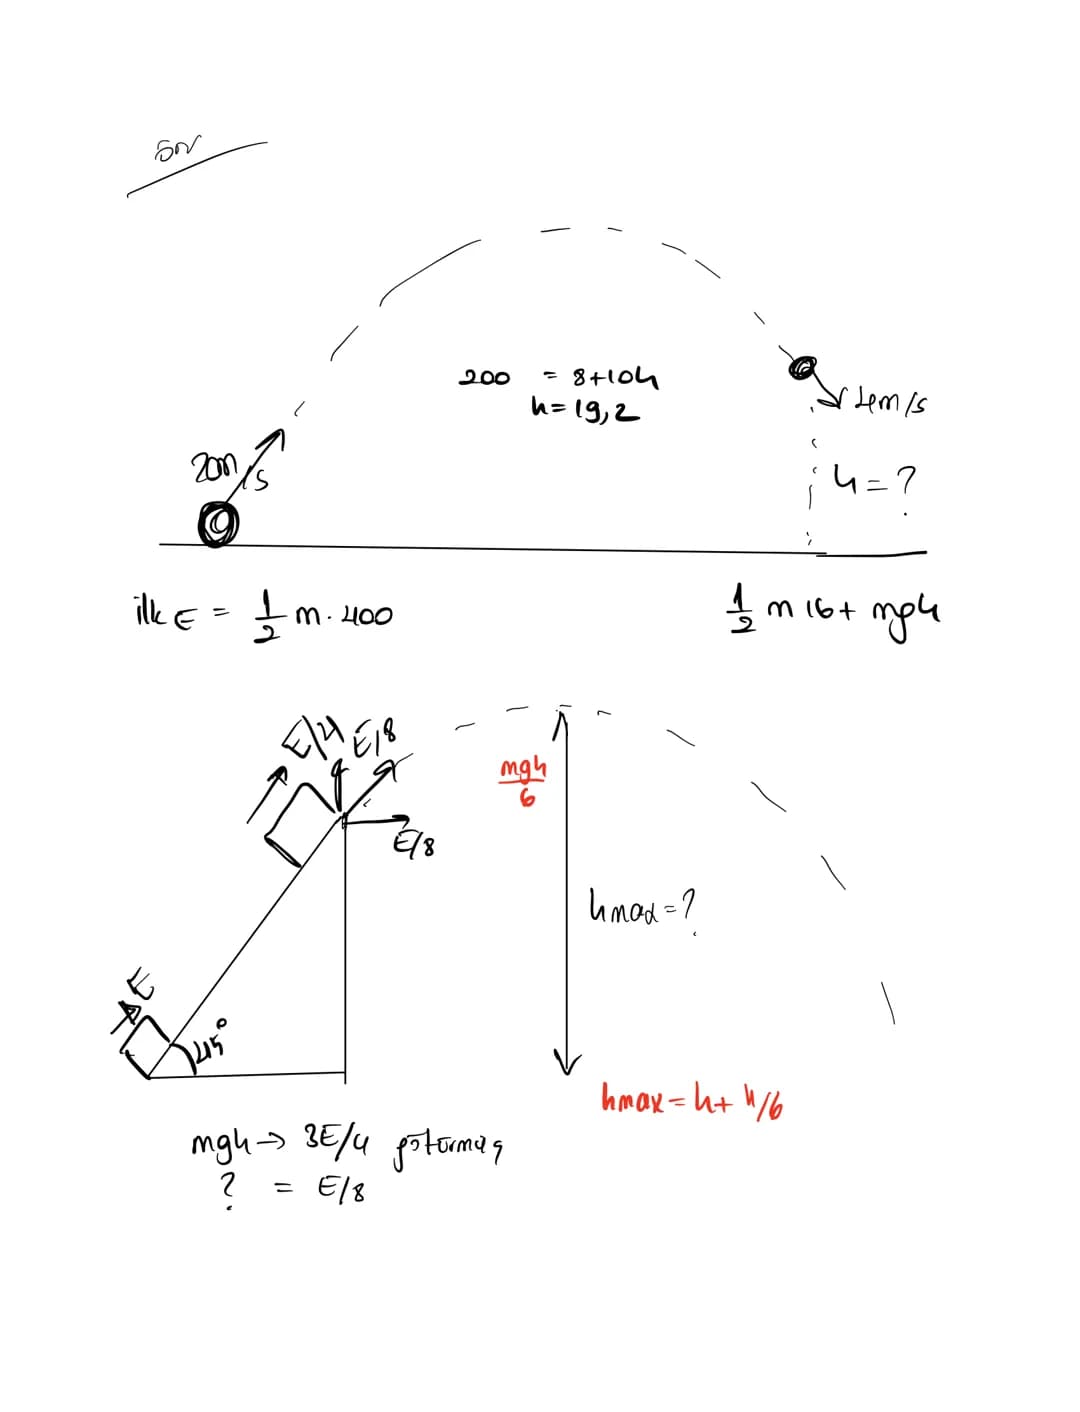 200 = 8+10h
h=19,2
20m/s
4m/s
h=?
ilk E = 1/2 m.400
1/2 m 16+ mgh
E/4
E/8
mgh/6
E/8
hmax=?
E
45°
hmax=h+h/6
mgh→ 3E/4 götürmüş
? = E/8